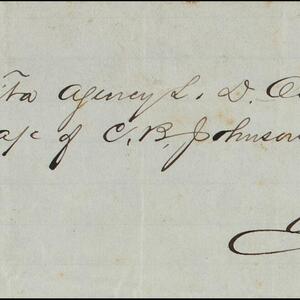 ita Agency L. D.
of C. B. Johnson